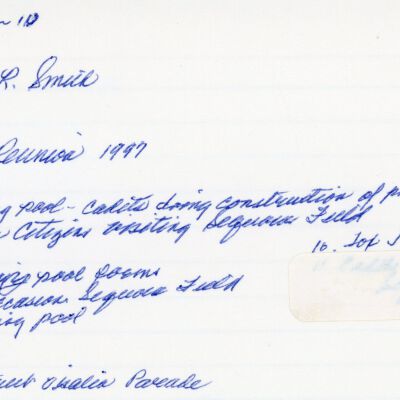 L. Smith
Reunion 1997
pool - cadets doing construction of p
Citizens visiting Sequoia Field
10. Top
ing pool forms
ccasion Sequoia Field
ing pool
Visalia Parade